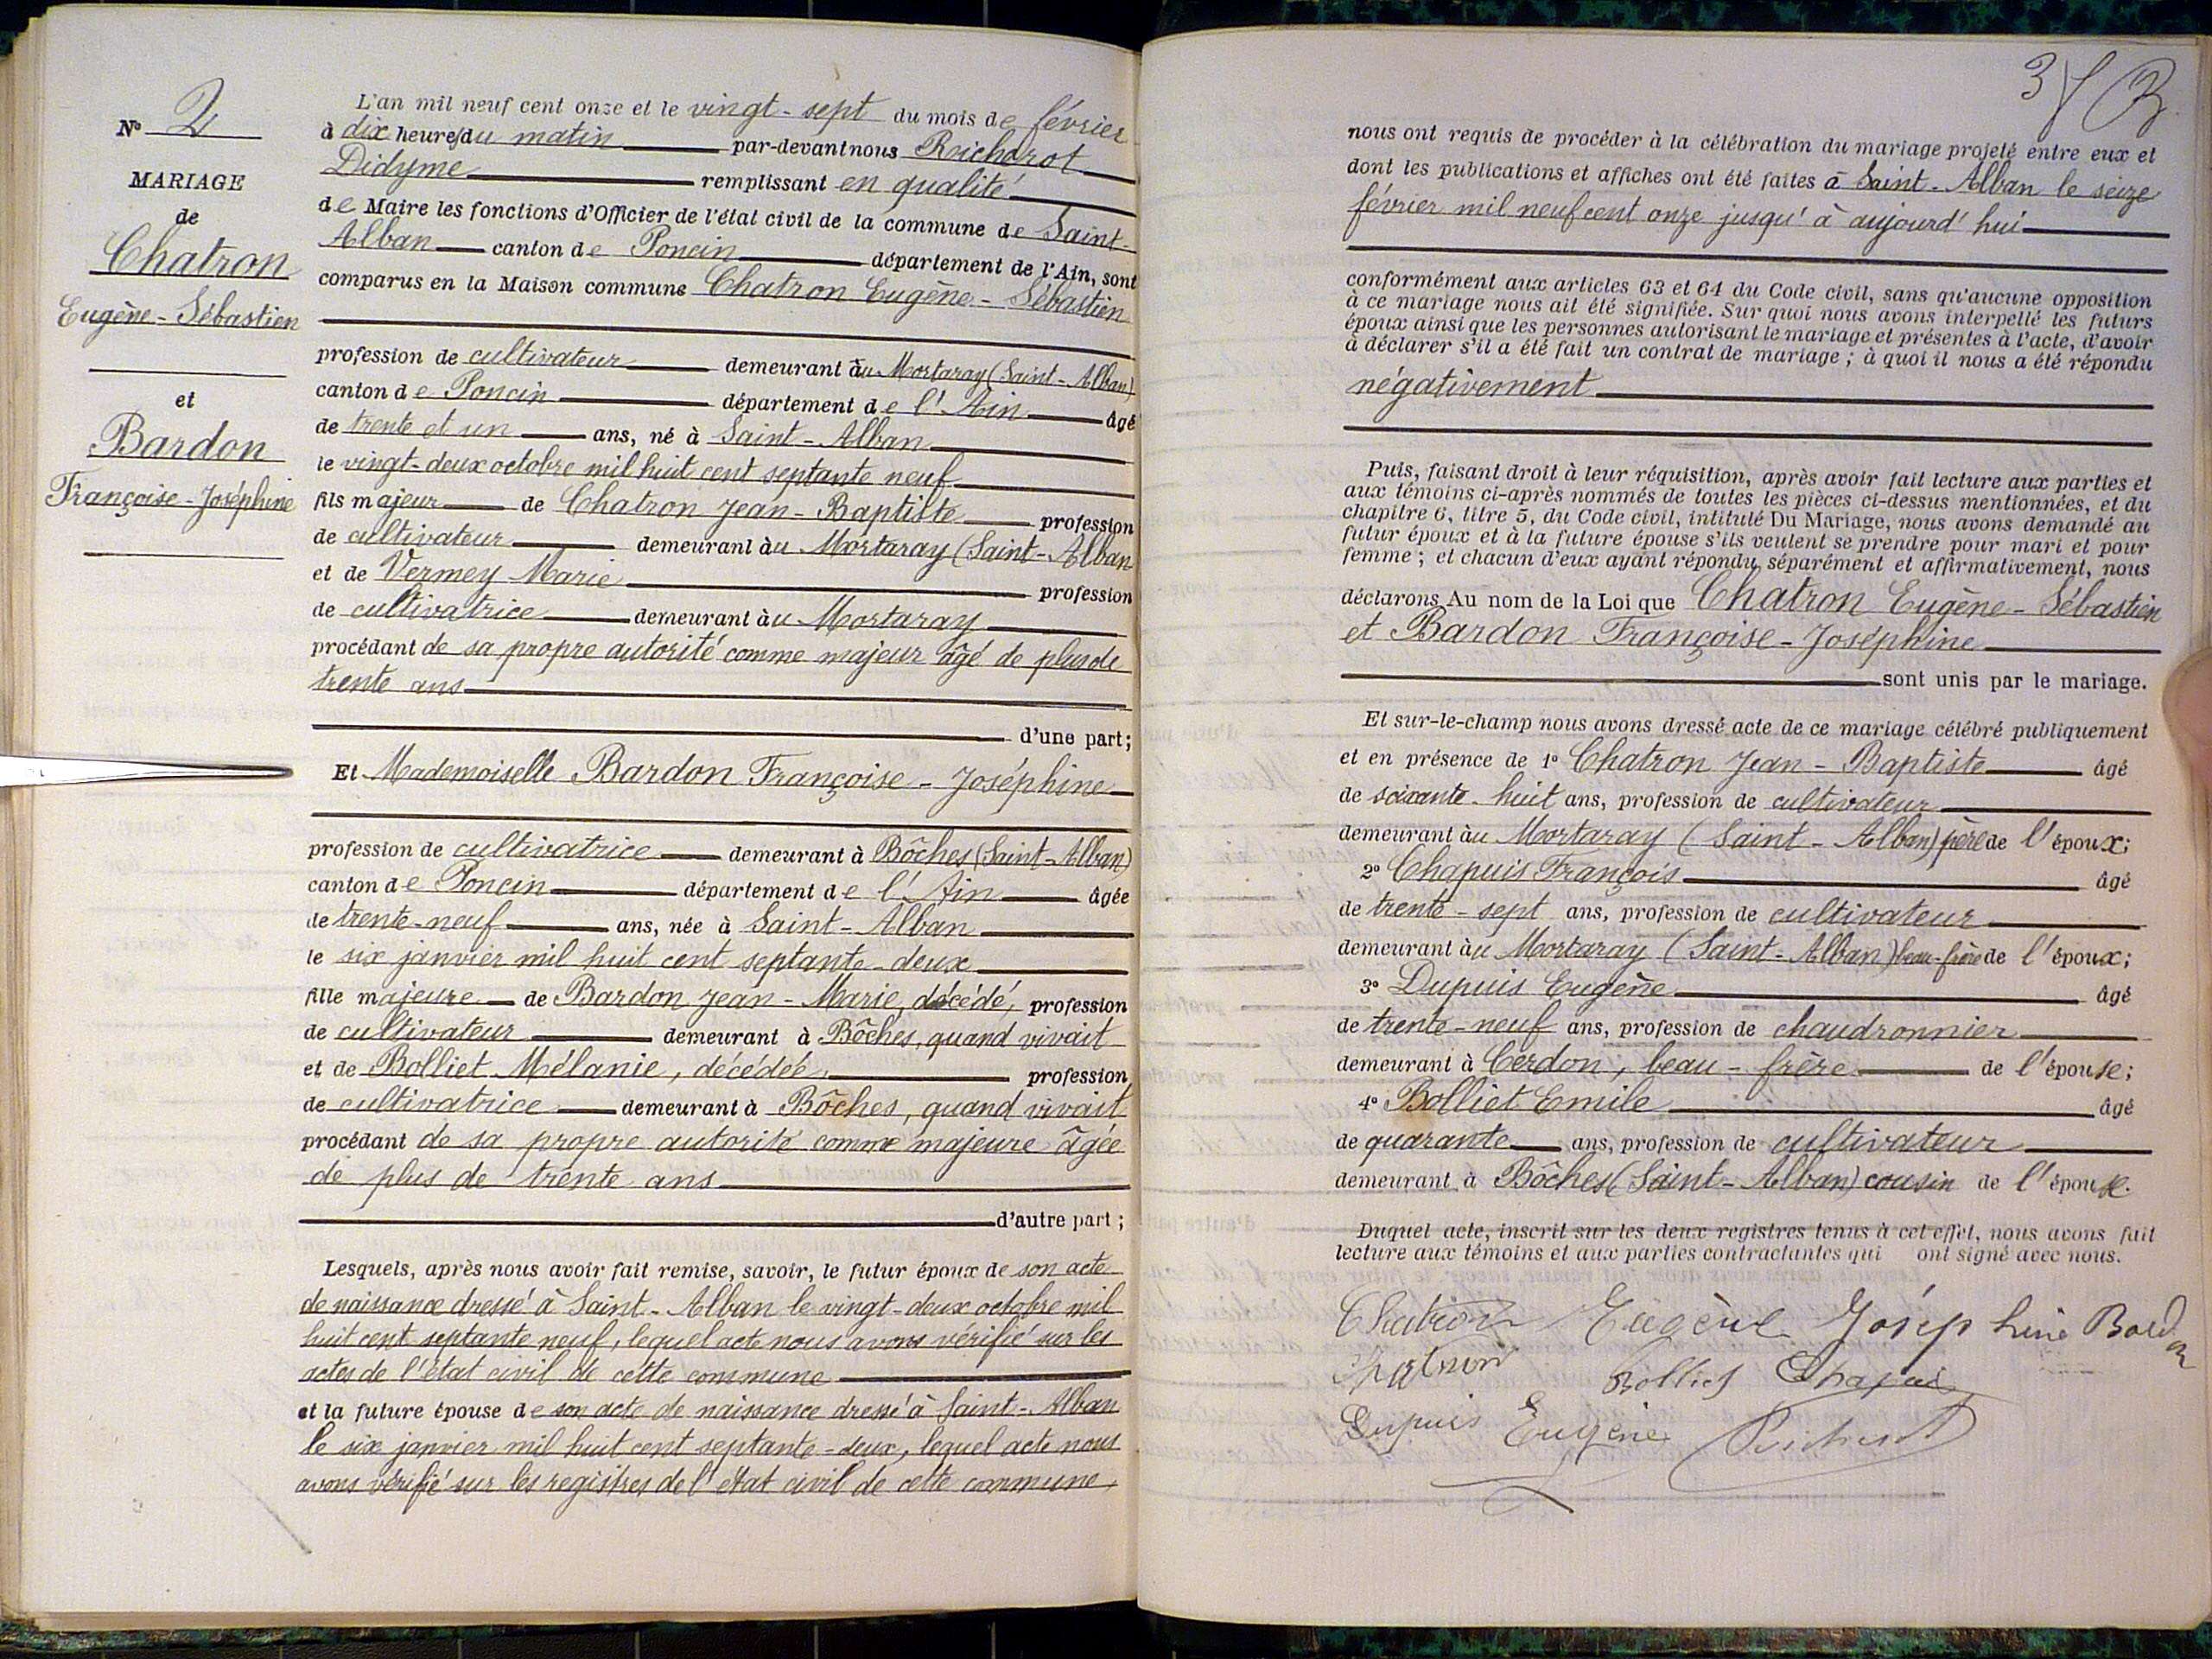 N° 2
MARIAGE
de
Chatron
Eugène-Sébastien
et
Bardon
Françoise-Joséphine
L'an mil neuf cent onze et le vingt-sept du mois de février
à dix heures du matin par-devant nous Richerot
Didyme remplissant en qualité
de Maire les fonctions d'Officier de l'état civil de la commune de Saint-
Alban canton de Poncin département de l'Ain, sont
comparus en la Maison commune Chatron Eugène-Sébastien
profession de cultivateur demeurant au Mortaray (Saint-Alban)
canton de Poncin département de l'Ain âgé
de trente et un ans, né à Saint-Alban
le vingt-deux octobre mil huit cent septante neuf
fils majeur de Chatron Jean-Baptiste profession
de cultivateur demeurant au Mortaray (Saint-Alban
et de Vermey Marie profession
de cultivatrice demeurant au Mortaray
procédant de sa propre autorité comme majeur âgé de plus de
trente ans
d'une part;
Et Mademoiselle Bardon Françoise-Joséphine
profession de cultivatrice demeurant à Bôches (Saint-Alban)
canton de Poncin département de l'Ain âgée
de trente-neuf ans, née à Saint-Alban
le six janvier mil huit cent septante-deux
fille majeure de Bardon Jean-Marie, décédé, profession
de cultivateur demeurant à Bôches, quand vivait
et de Bolliet Mélanie, décédée, profession
de cultivatrice demeurant à Bôches, quand vivait
procédant de sa propre autorité comme majeure âgée
de plus de trente ans
d'autre part;
Lesquels, après nous avoir fait remise, savoir, le futur époux de son acte
de naissance dressé à Saint-Alban le vingt-deux octobre mil
huit cent septante neuf, lequel acte nous avons vérifié sur les
actes de l'état civil de cette commune
et la future épouse de son acte de naissance dressé à Saint-Alban
le six janvier mil huit cent septante-deux, lequel acte nous
avons vérifié sur les registres de l'état civil de cette commune,
3
nous ont requis de procéder à la célébration du mariage projeté entre eux et
dont les publications et affiches ont été faites à Saint-Alban le seize
février mil neuf cent onze jusqu'à aujourd'hui
conformément aux articles 63 et 64 du Code civil, sans qu'aucune opposition
à ce mariage nous ait été signifiée. Sur quoi nous avons interpellé les futurs
époux ainsi que les personnes autorisant le mariage et présentes à l'acte, d'avoir
à déclarer s'il a été fait un contrat de mariage; à quoi il nous a été répondu
négativement
Puis, faisant droit à leur réquisition, après avoir fait lecture aux parties et
aux témoins ci-après nommés de toutes les pièces ci-dessus mentionnées, et du
chapitre 6, titre 5, du Code civil, intitulé Du Mariage, nous avons demandé au
futur époux et à la future épouse s'ils veulent se prendre pour mari et pour
femme; et chacun d'eux ayant répondu séparément et affirmativement, nous
déclarons Au nom de la Loi que Chatron Eugène-Sébastien
et Bardon Françoise-Joséphine
sont unis par le mariage.
Et sur-le-champ nous avons dressé acte de ce mariage célébré publiquement
et en présence de 1° Chatron Jean-Baptiste âgé
de soixante-huit ans, profession de cultivateur
demeurant au Mortaray (Saint-Alban) père de l'époux;
2° Chapuis François âgé
de trente-sept ans, profession de cultivateur
demeurant au Mortaray (Saint-Alban) beau-frère de l'époux;
3° Dupuis Eugène âgé
de trente-neuf ans, profession de chaudronnier
demeurant à Cerdon, beau-frère de l'épouse;
4° Bolliet Emile âgé
de quarante ans, profession de cultivateur
demeurant à Bôches (Saint-Alban) cousin de l'épouse.
Duquel acte, inscrit sur les deux registres tenus à cet effet, nous avons fait
lecture aux témoins et aux parties contractantes qui ont signé avec nous.
Chatron Eugène Joséphine Bardon
Chatron Bolliet Chapuis
Dupuis Eugène Richerot